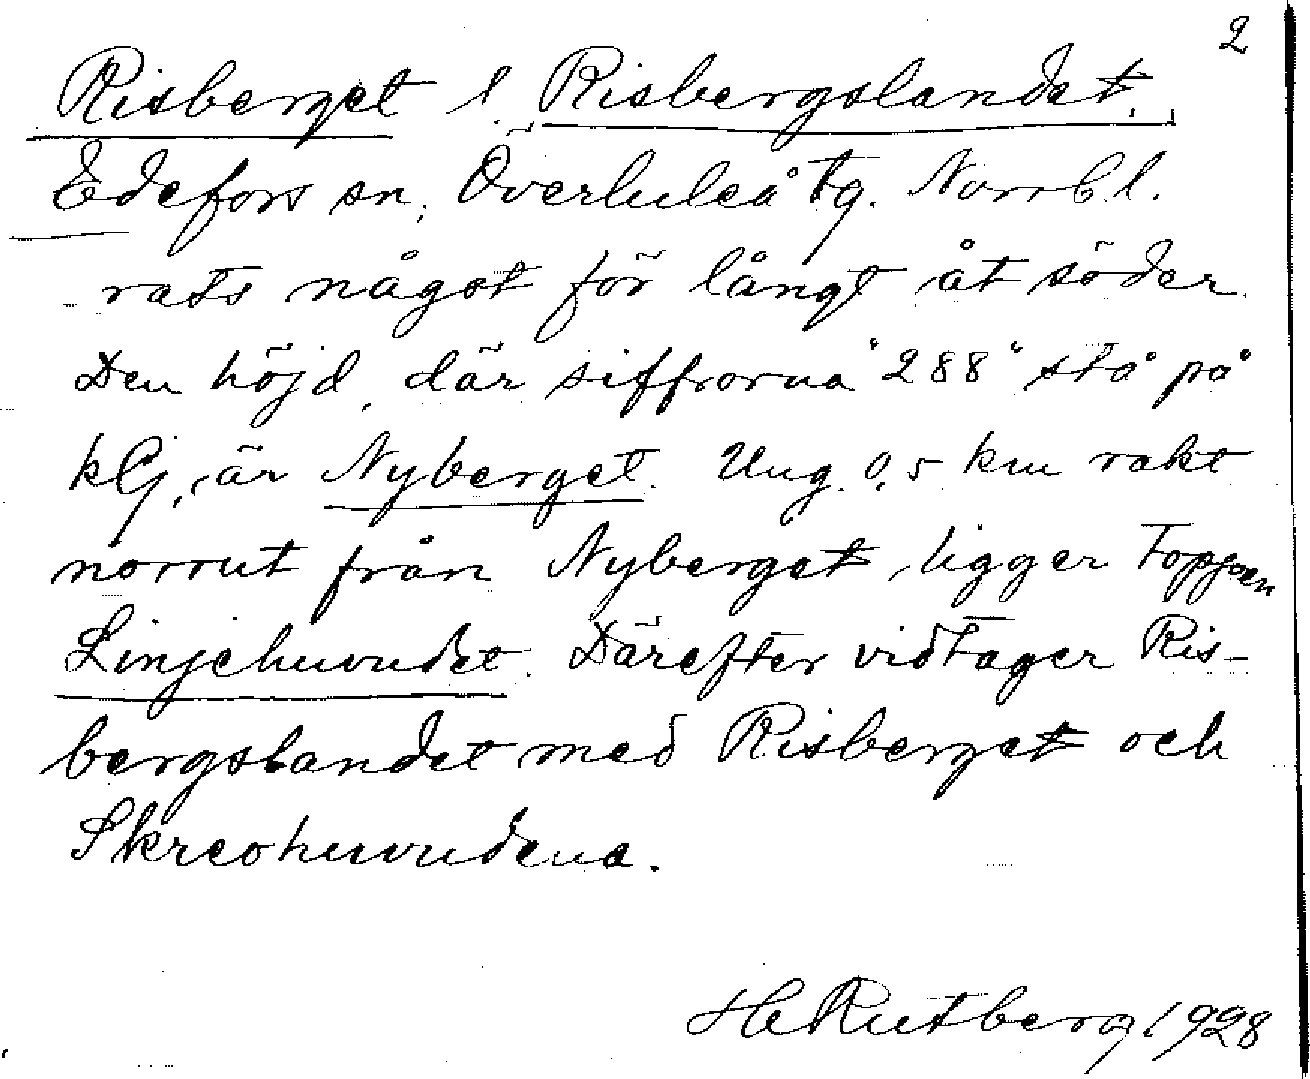 2
Risberget l. Risbergslandet.
Edefors sn, Överluleå tg. Norrb l.
rats något för långt åt söder.
Den höjd, där siffrorna "288" stå på
klj, är Nyberget. Ung. 0,5 km rakt
norrut från Nyberget ligger toppen
Linjehuvudet. Därefter vidtager Ris-
bergslandet med Risberget och
Skreohuvudena.
HRutberg 1928